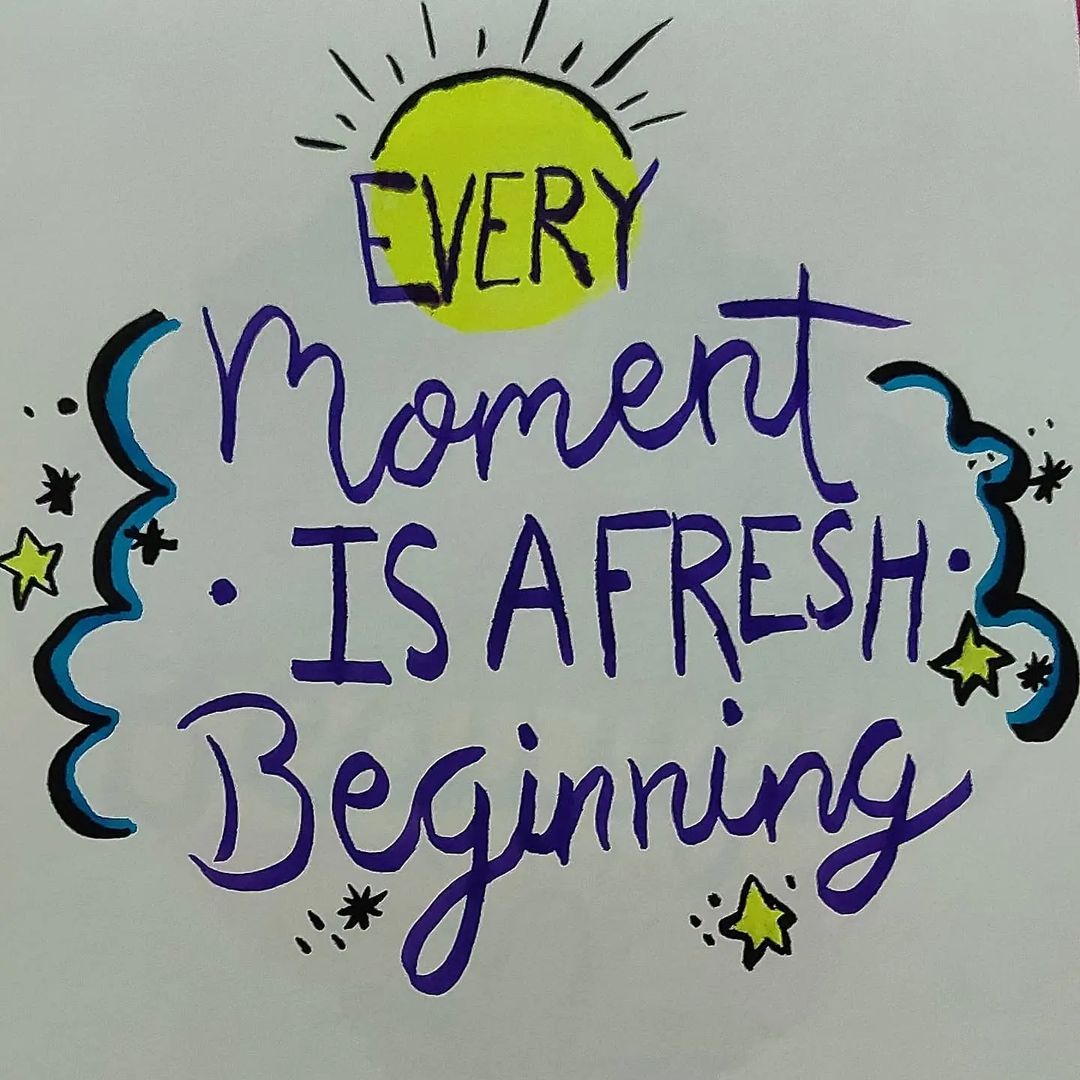 EVERY
Moment
• IS A FRESH •
Beginning